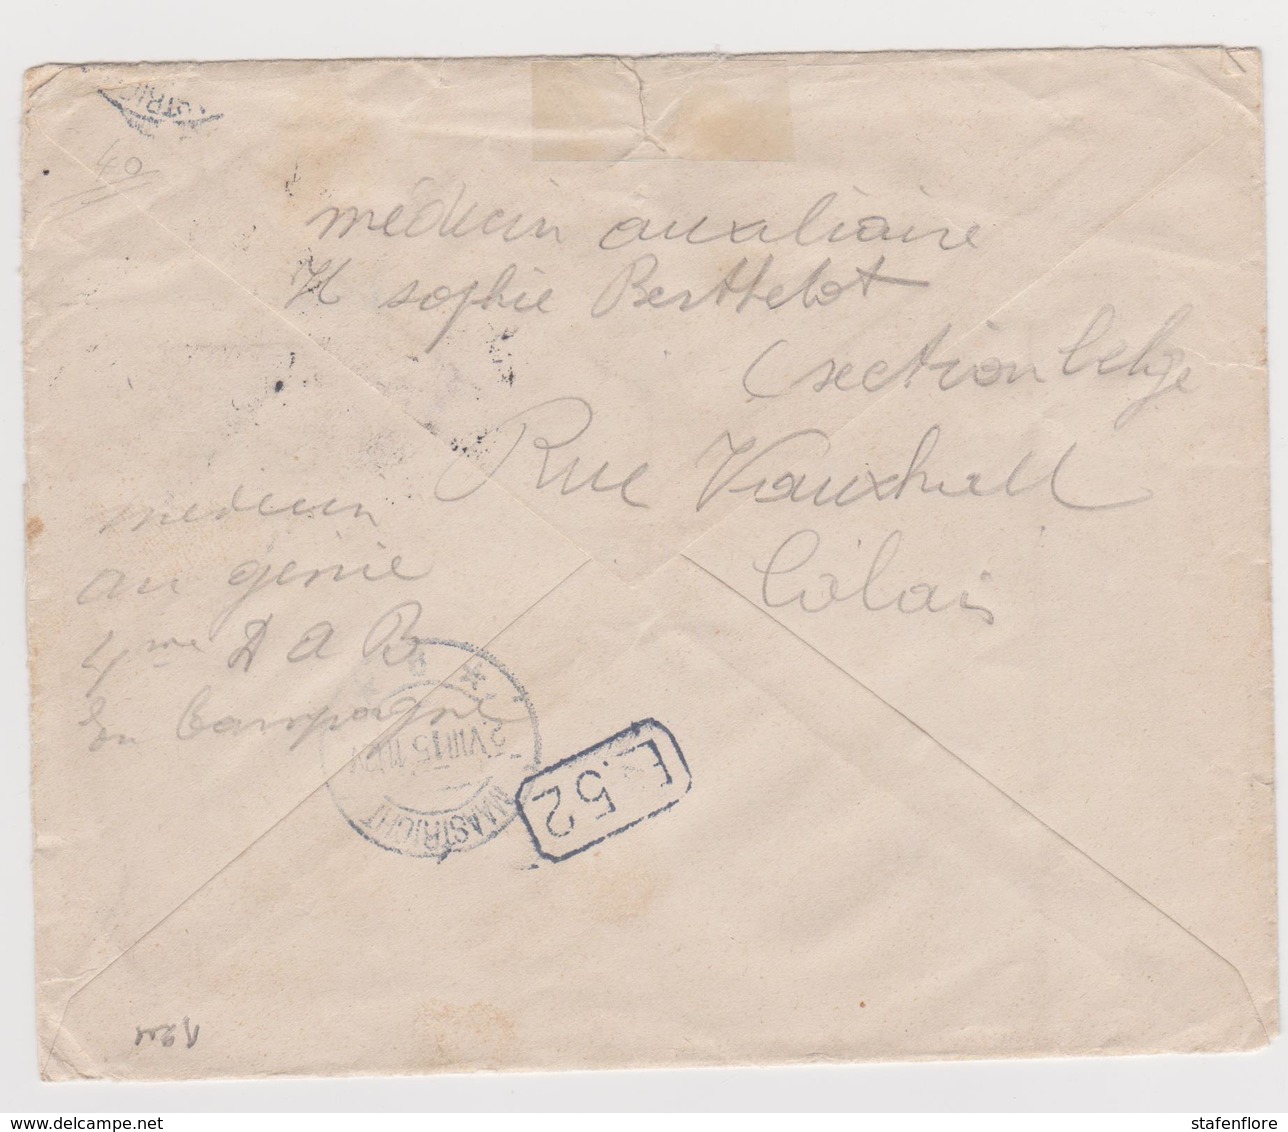 40
médecin auxaliaire
H sophie Berthelot
(section belge
Rue Vauxhall
Calais
médecin
au génie
4me D A B
En Campagne
MAASTRICHT
E.52
stafenflore